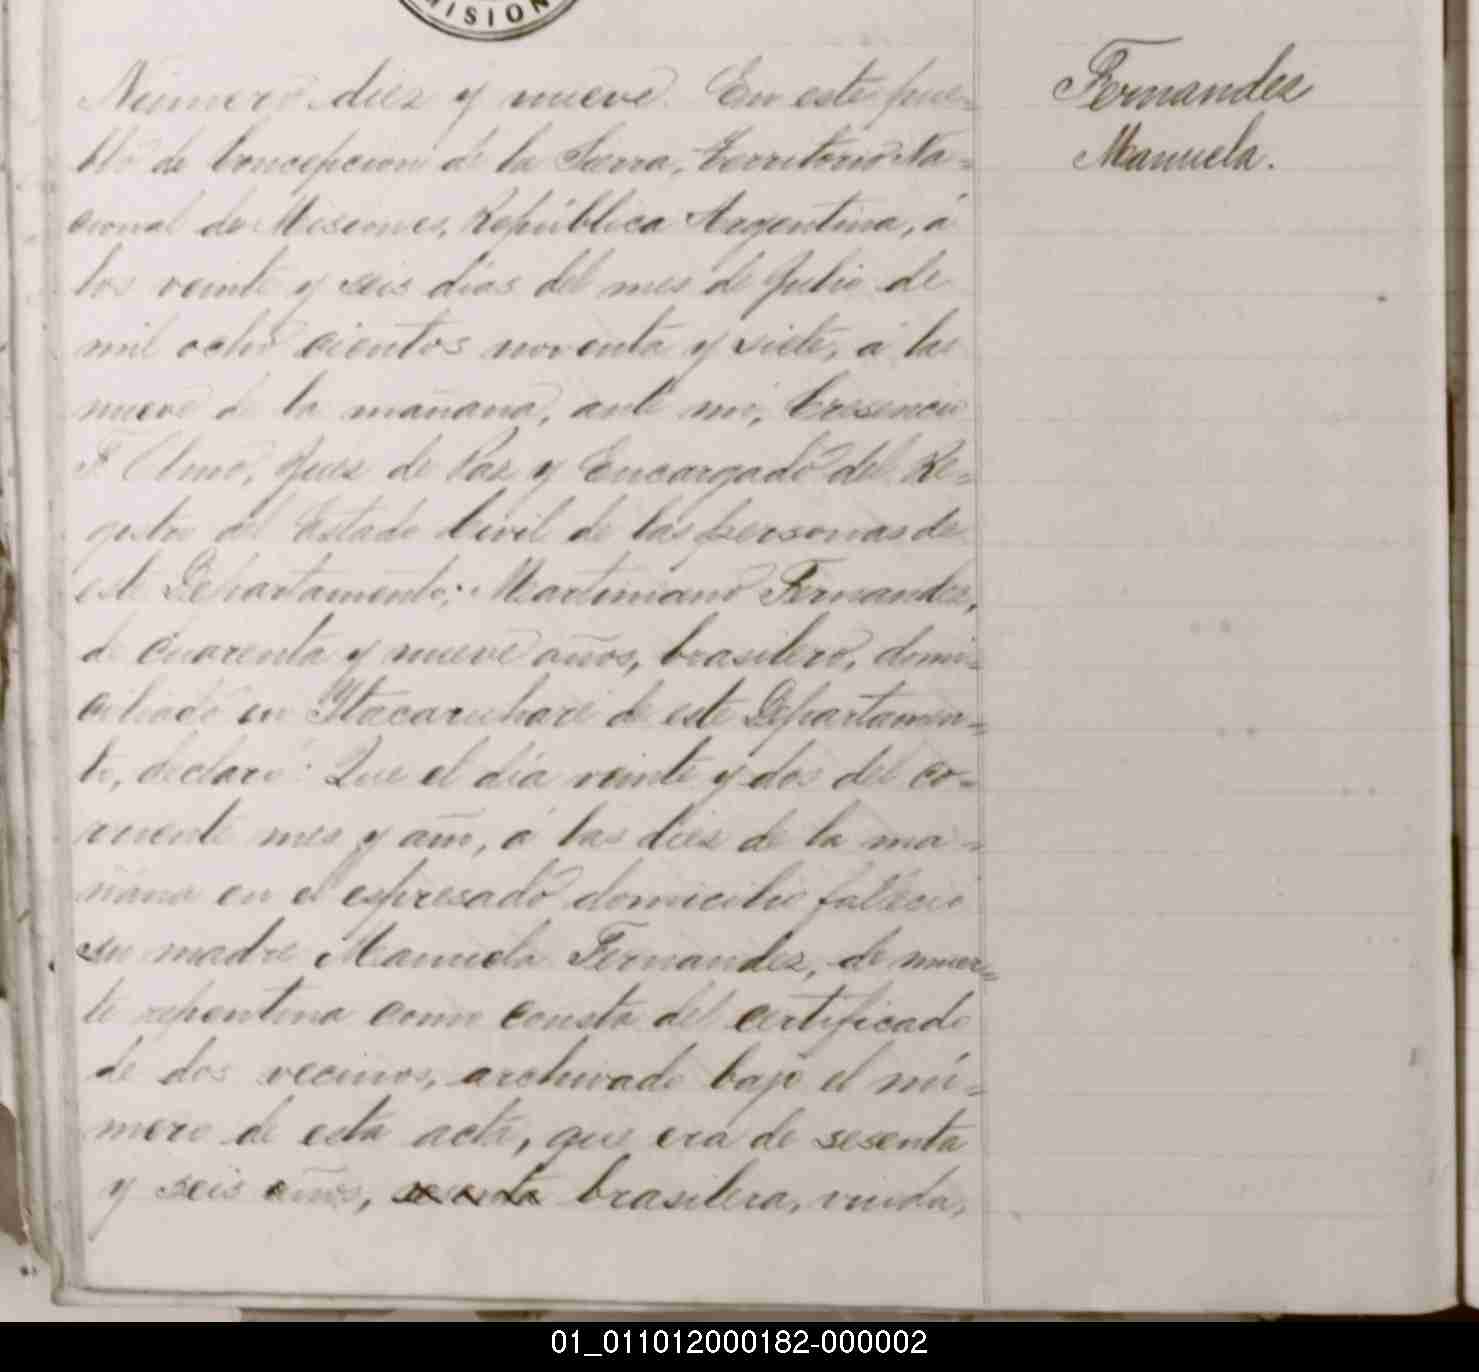 MISION
Número diez y nueve. En este pue-
blo de Concepcion de la Sierra, Territorio Na-
cional de Misiones, República Argentina, á
los veinte y seis dias del mes de Julio de
mil ocho cientos noventa y siete, á las
nueve de la mañana, ante mi, Cresencio
F. Olmo, Juez de Paz y Encargado del Re-
gistro del Estado Civil de las personas de
este Departamento; Martiniano Fernandez,
de cuarenta y nueve años, brasilero, domi-
ciliado en Ytacaruharé de este Departamen-
to, declaró: Que el día veinte y dos del co-
rriente mes y año, á las diez de la ma-
ñana en el espresado domicilio falleció
su madre Manuela Fernandez, de muer-
te repentina como consta del certificado
de dos vecinos, archivado bajo el nú-
mero de esta acta, que era de sesenta
y seis años, brasilera, viuda,
Fernandez
Manuela.
01_011012000182-000002